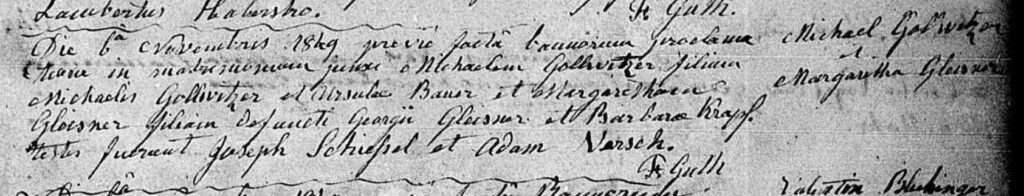 Lambertus Habersko.
Fr Guth.
Die 6ta Novembris 1849 previe facta bannorum proclama
tione in matrimonium junxi Michaelem Gollwitzer filium
Michaelis Gollwitzer et Ursulae Bauer et Margaretham
Gleisner filiam defuncti Georgii Gleisner et Barbarae Krapf.
testes fuerunt Joseph Schiessel et Adam Versch.
Fr Guth
Michael Gollwitzer
+
Margaretha Gleisner
Valentin